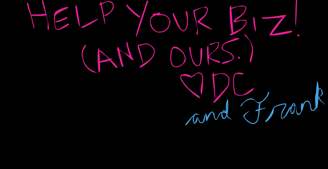 HELP YOUR BIZ!
(AND OURS.)
♡ DC
and Frank